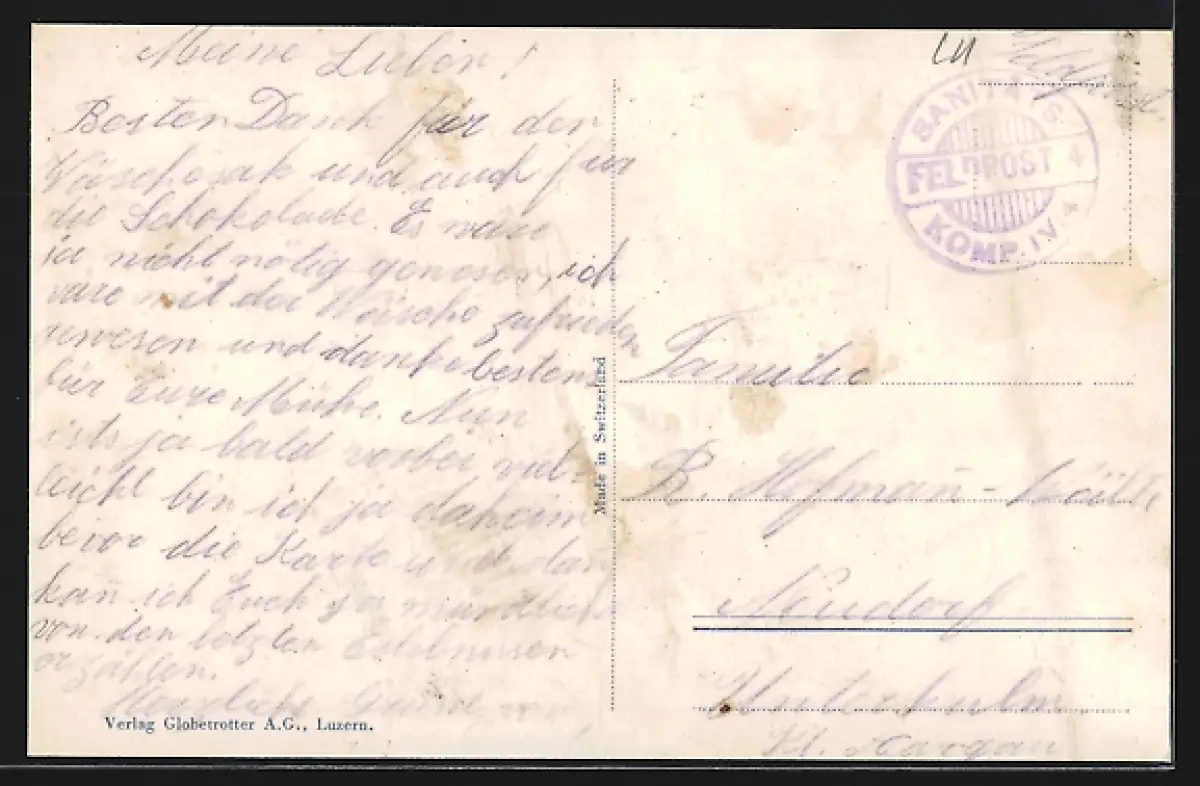 Meine Lieben!
Besten Dank für den
Wäschesak und auch für
die Schokolade. Es wäre
ja nicht nötig gewesen, ich
wäre mit der Wäsche zufrieden
gewesen und danke bestens
für Eure Mühe. Nun
ists ja bald vorbei viel-
leicht bin ich ja daheim
bevor die Karte und dan̄
kan̄ ich Euch ja mündlich
von den letzten Erlebnissen
erzählen.
Herzliche Grüsse von
Verlag Globetrotter A.G., Luzern.
Made in Switzerland
LU
Feldpost.
SANITÄTS
FELDPOST 4
KOMP. IV
Familie
B. Hofman̄ -
Neudorf
Unterkulm
Kt. Aargau